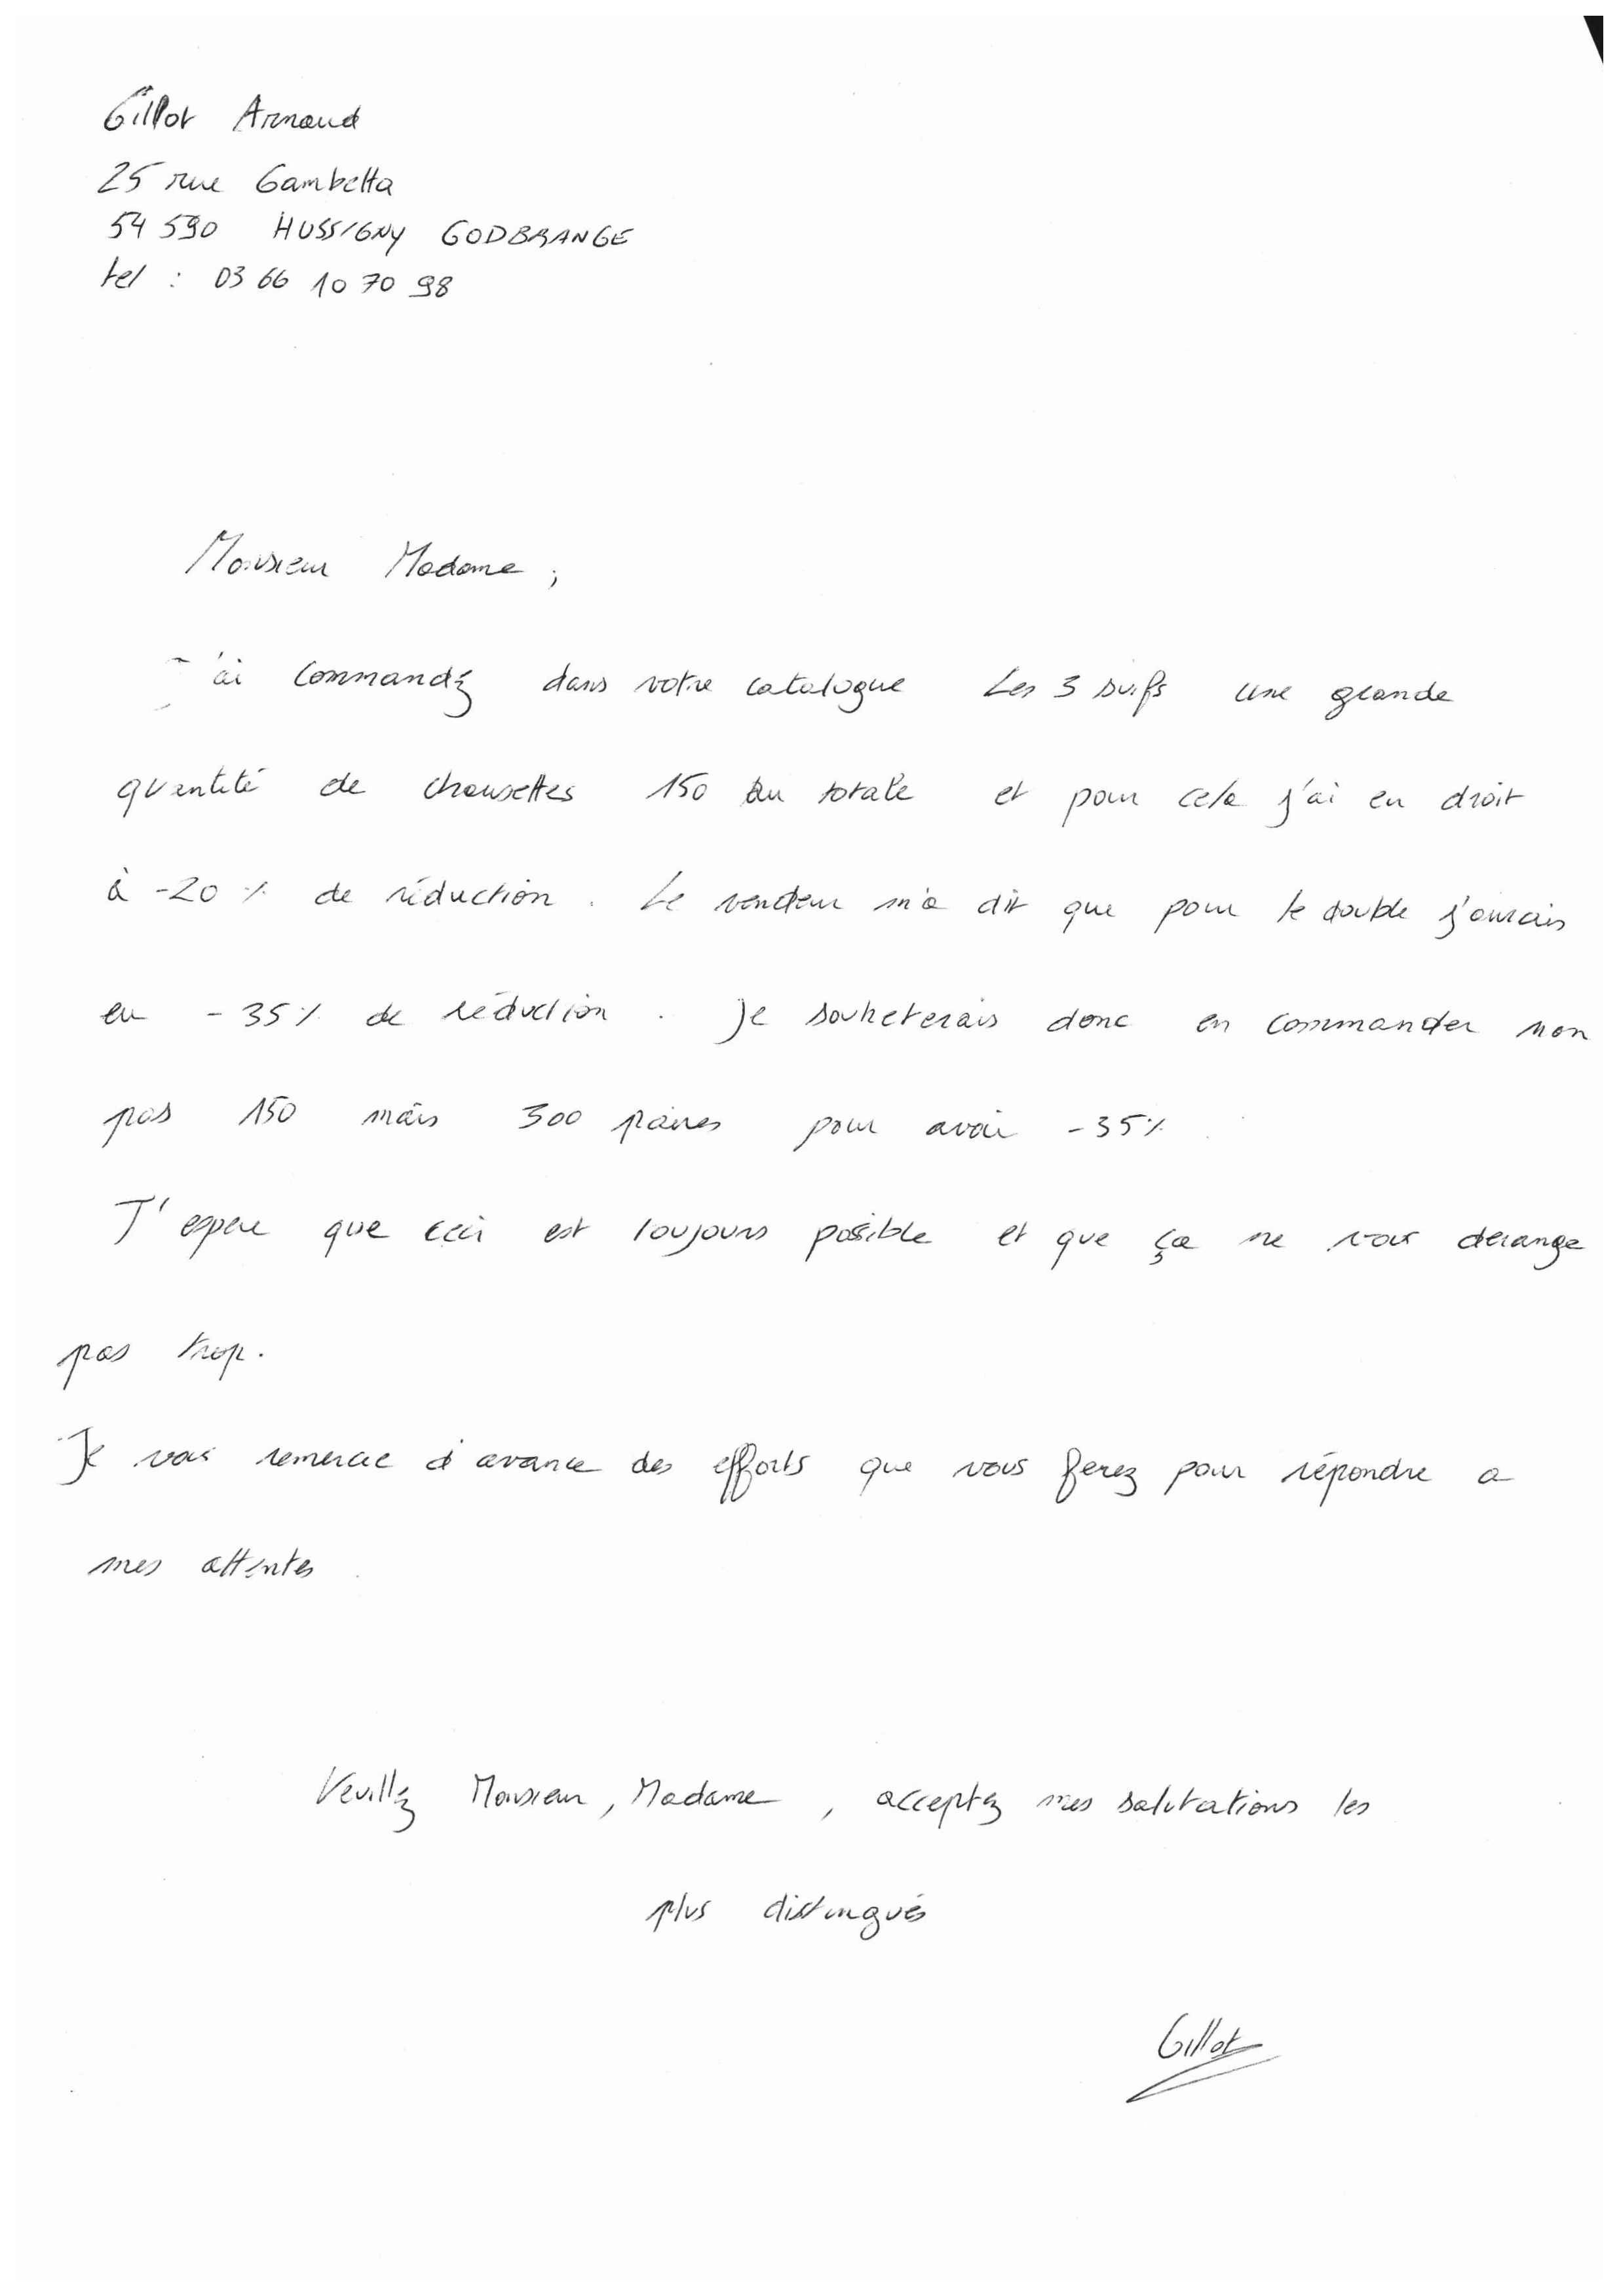 Gillot Arnaud
25 rue Gambetta
54 590 HUSSIGNY GODBRANGE
tel : 03 66 10 70 98
Monsieur Madame ;
J'ai commandéz dans votre catalogue Les 3 suifs une grande
quantité de chaussettes 150 au totale et pour cela j'ai eu droit
à -20 % de réduction. Le vendeur m'a dit que pour le double j'aurais
eu - 35 % de réduction. Je souheterais donc en commander non
pas 150 mais 300 paires pour avoir - 35 %.
J'espere que ceci est toujours possible et que ça ne vous derange
pas trop.
Je vous remercie d'avance des efforts que vous ferez pour répondre a
mes attentes.
Veuillez Monsieur, Madame, acceptez mes salutations les
plus distingués
Gillot